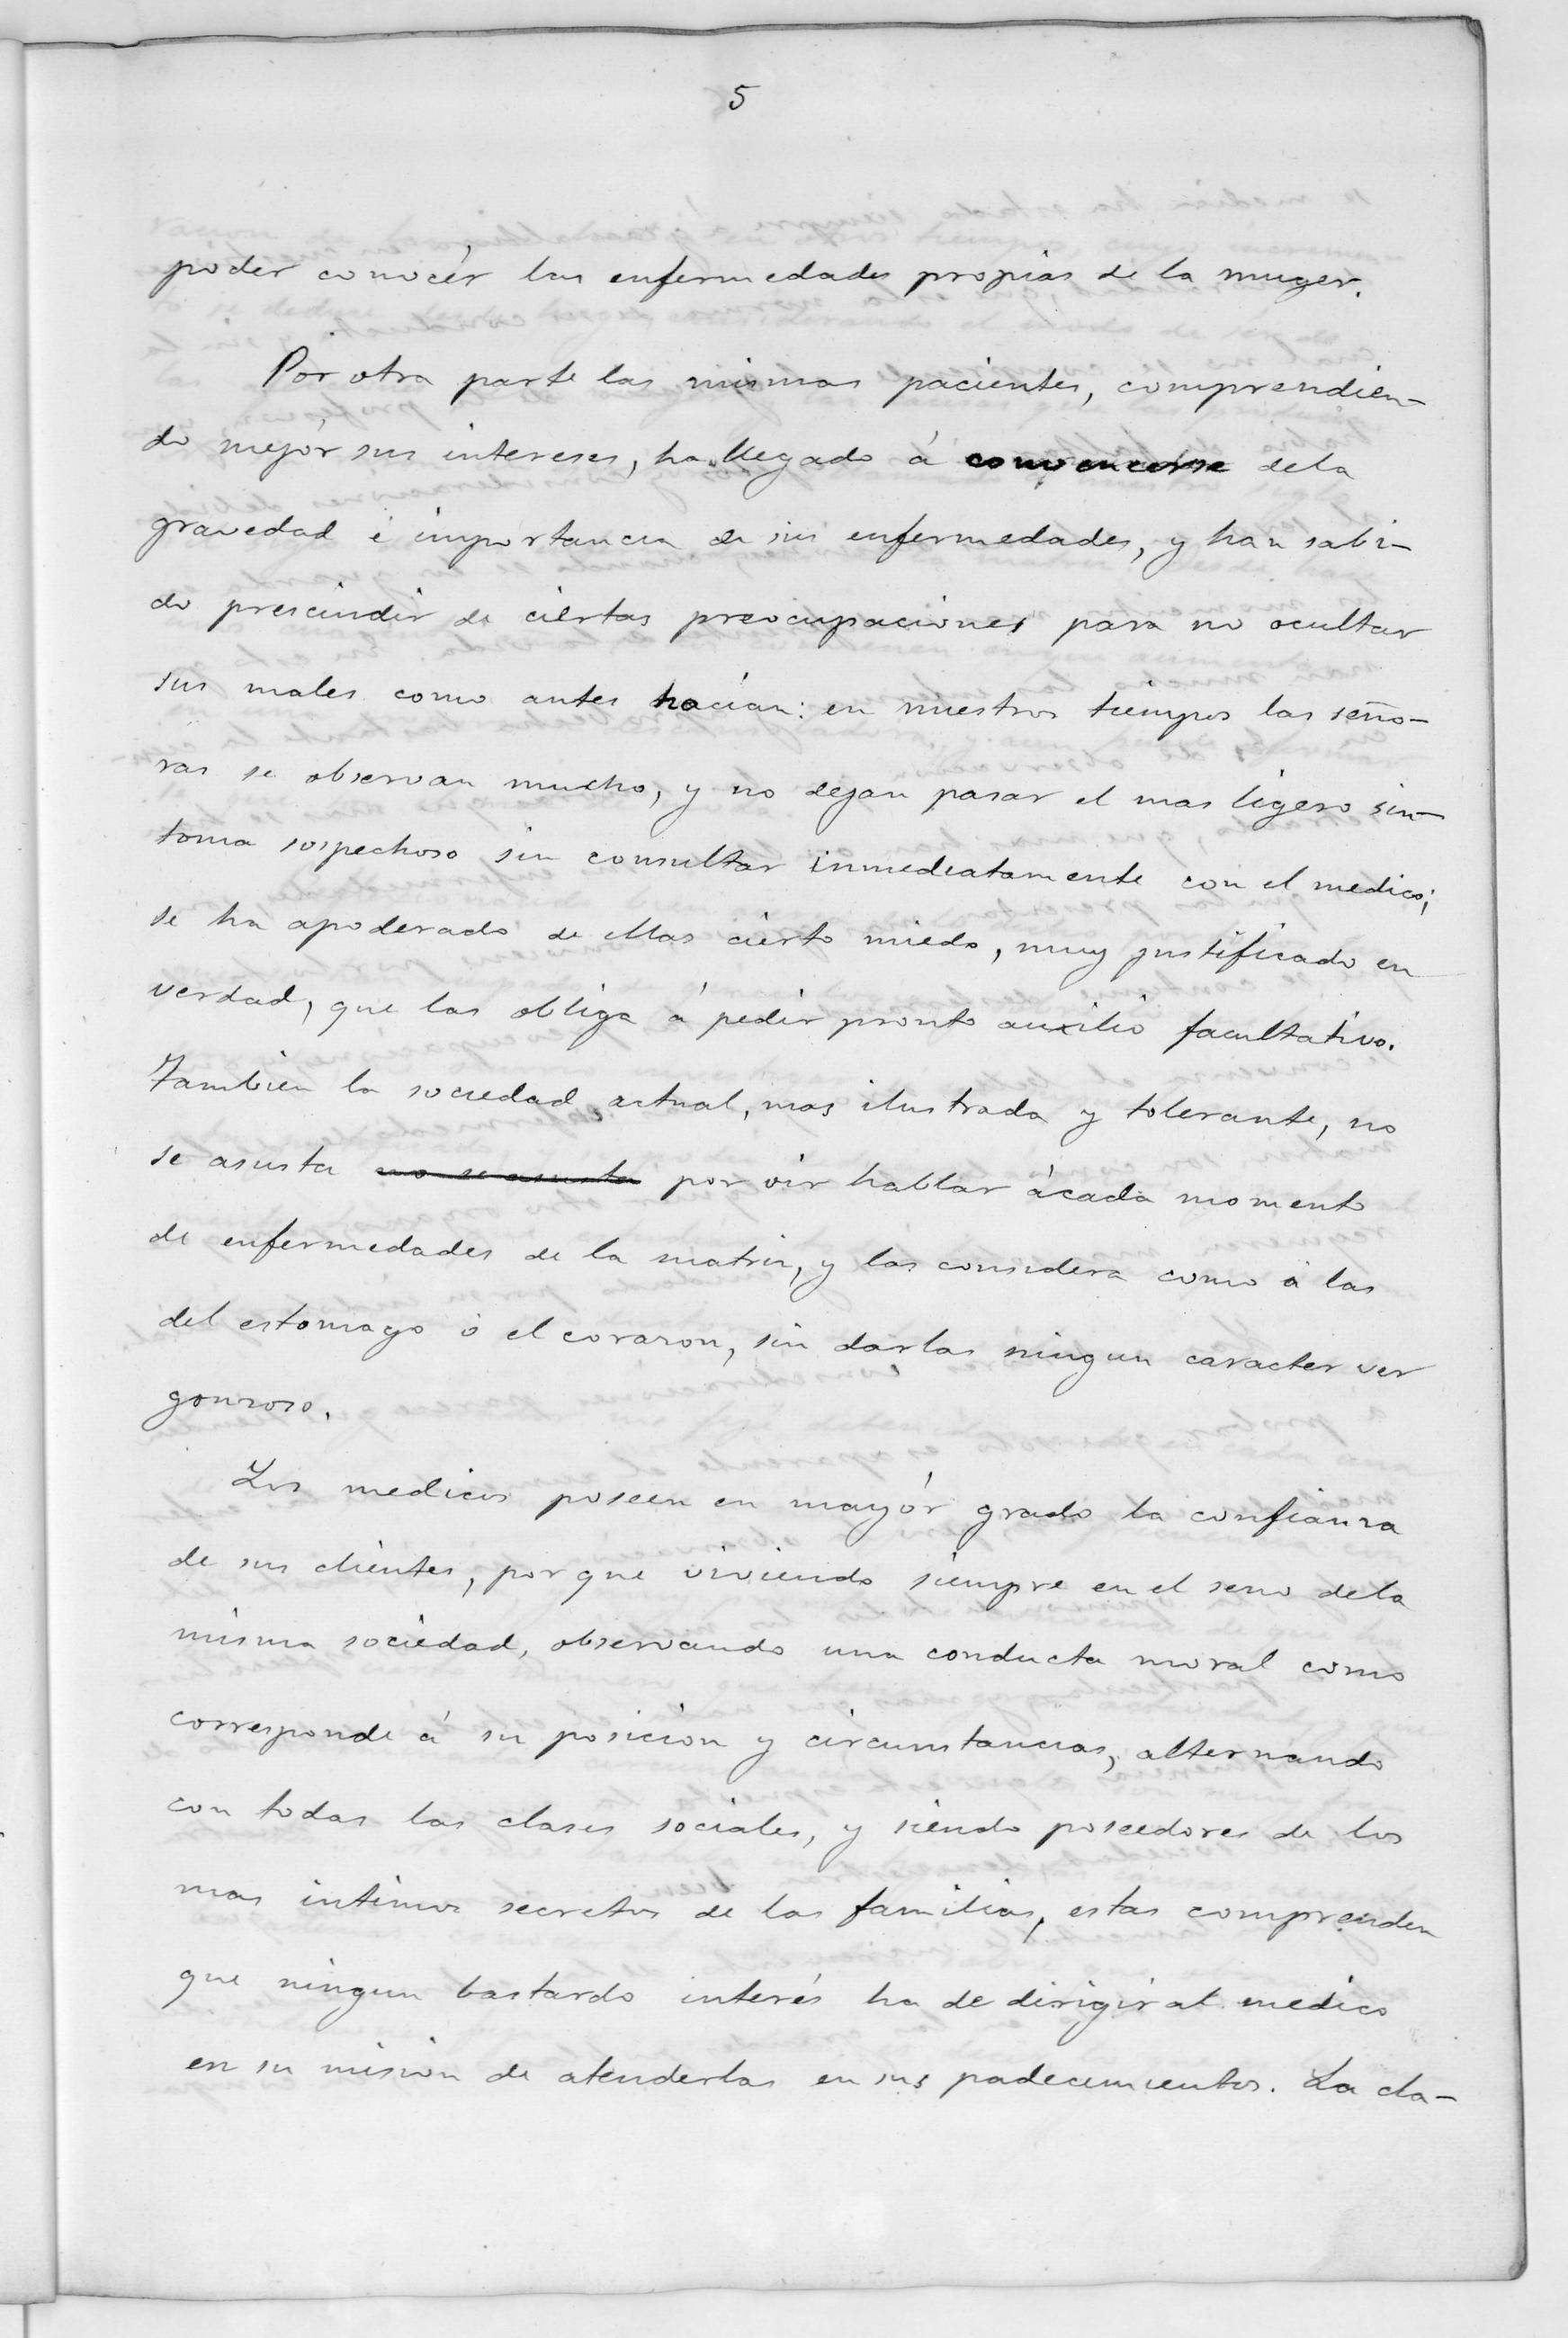 5
poder conocér las enfermedades propias de la muger.
Por otra parte las mismas pacientes, comprendien-
do mejór sus intereses, han llegado á convencerse dela
gravedad é importancia de sus enfermedades, y han sabi-
do prescindir de ciertas preocupaciones para no ocultar
sus males como antes hacian: en nuestros tiempos las seño-
ras se observan mucho, y no dejan pasar el mas ligero sin-
toma sospechoso sin consultar inmediatamente con el medico;
se ha apoderado de ellas cierto miedo, muy justificado en
verdad, que las obliga á pedir pronto auxilio facultativo.
Tambien la sociedad actual, mas ilustrada y tolerante, no
se asusta no se asusta por oir hablar ácada momento
de enfermedades de la matriz, y las considera como á las
del estomago ó el corazon, sin darlas ningun caracter ver
gonzoso.
Los medicos poseen en mayór grado la confianza
de sus clientes, por que viviendo siempre en el seno dela
misma sociedad, observando una conducta moral como
corresponde á su posicion y circunstancias, alternando
con todas las clases sociales, y siendo poseedores de los
mas intimos secretos de las familias, estas comprenden
que ningun bastardo interés ha de dirigir al medico
en su mision de atenderlas en sus padecimientos. La cla-